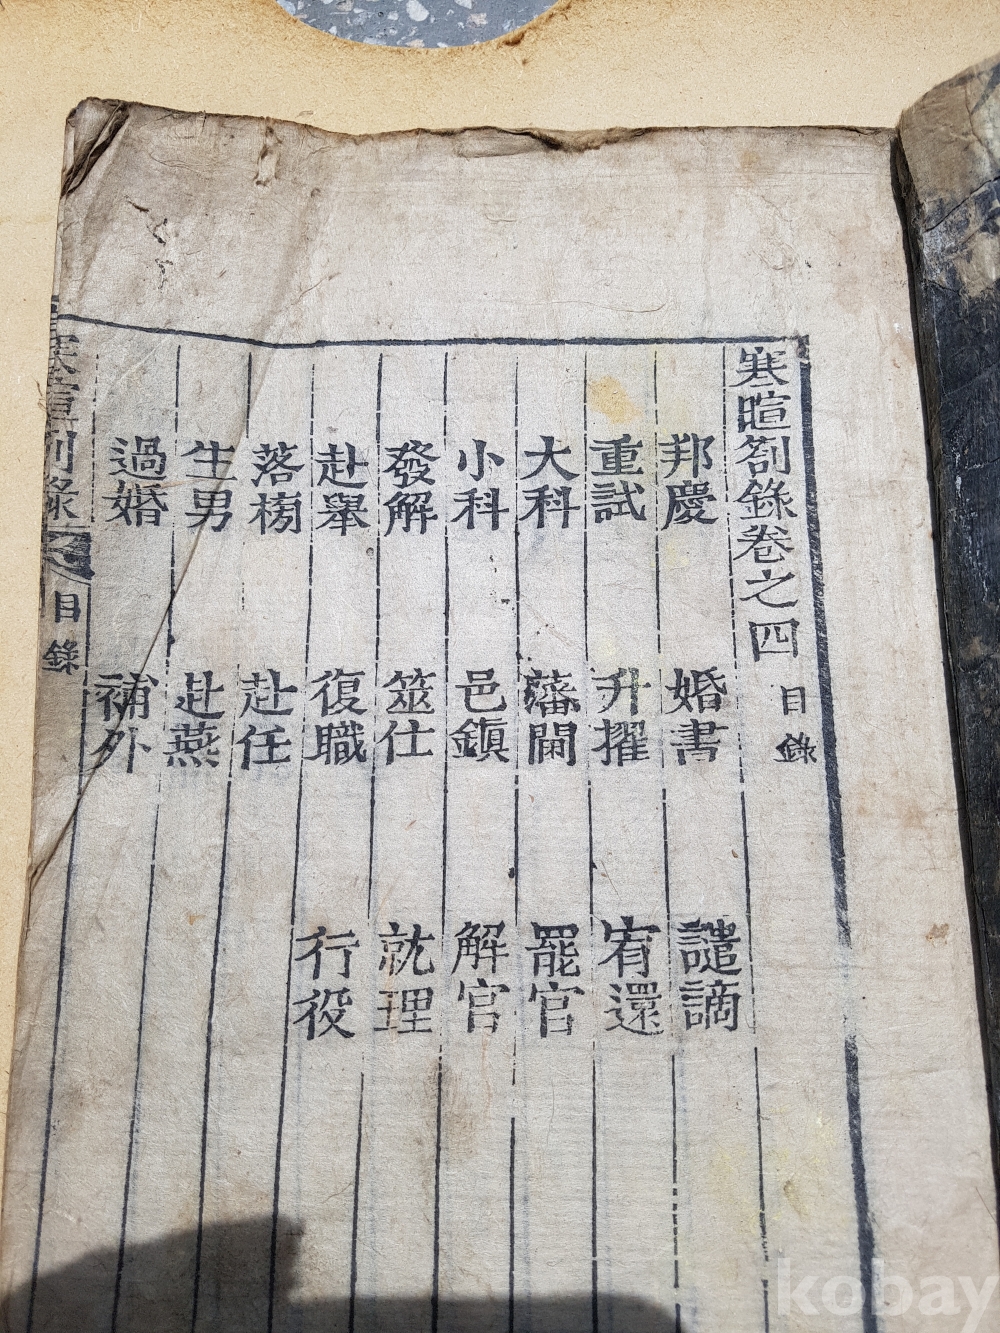 寒暄劄錄卷之四 目錄
邦慶 婚書 譴謫
重試 升擢 宥還
大科 藩閫 罷官
小科 邑鎭 解官
發解 筮仕 就理
赴擧 復職 行役
落榜 赴任
生男 赴燕
過婚 補外
寒暄劄錄 目錄
kobay